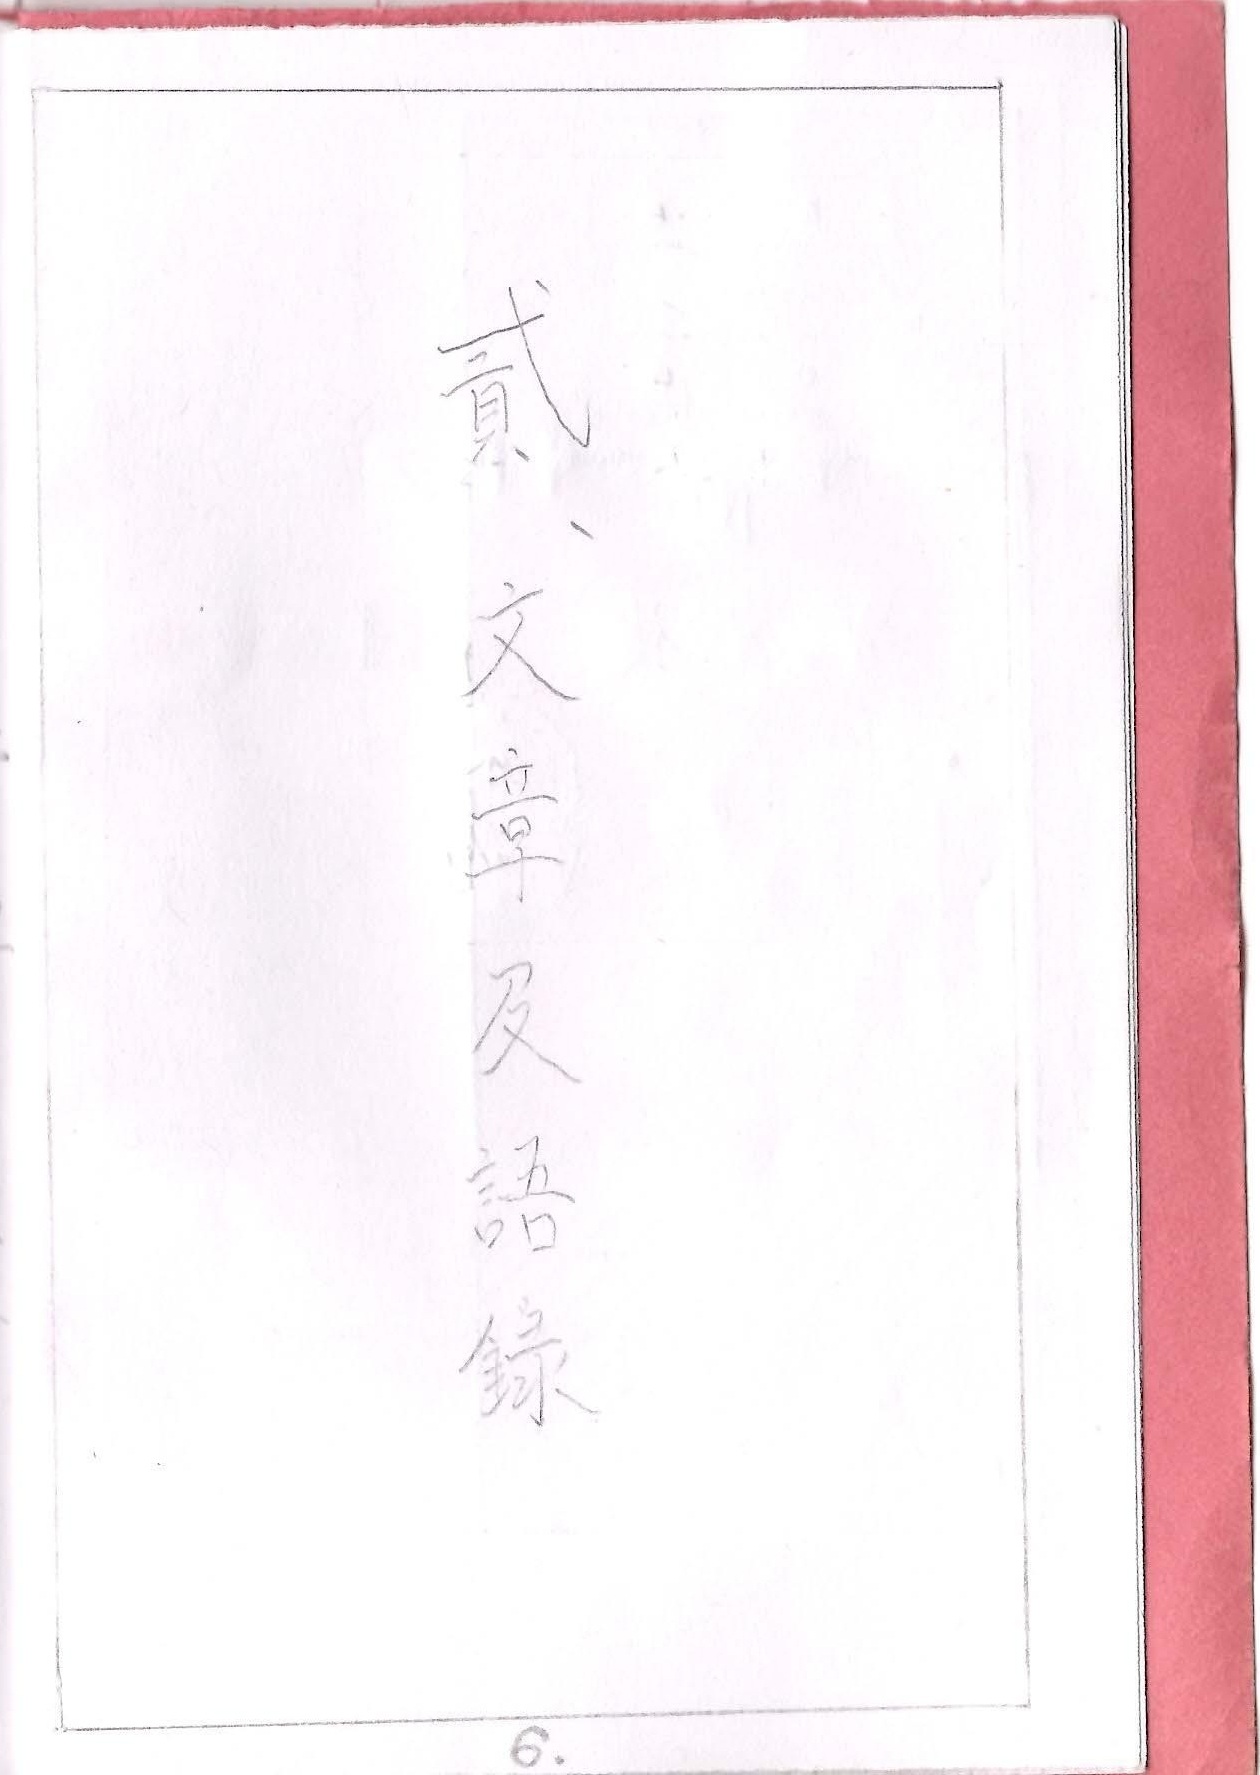 貳、文章及語錄
6.